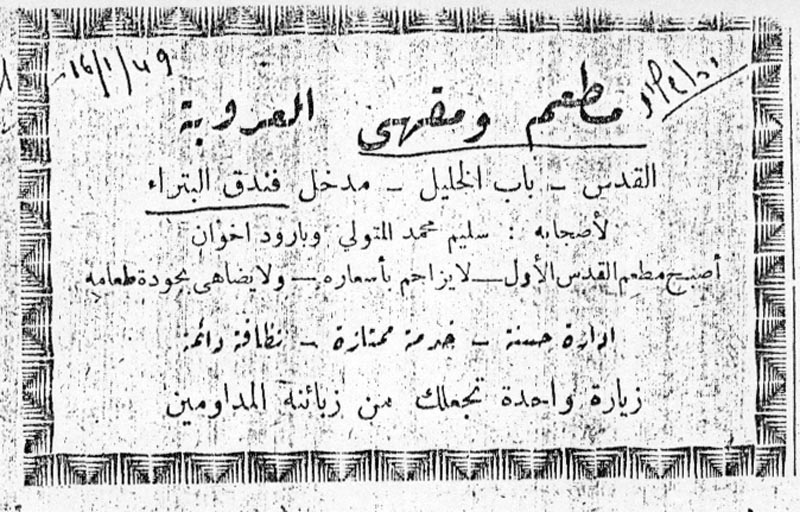 16/1/49
مطعم ومقهى العروبة
القدس – باب الخليل – مدخل فندق البتراء
لأصحابه : سليم محمد المتولي وبارود اخوان
أصبح مطعم القدس الأول – لايزاحم بأسعاره – ولايضاهى بجودة طعامه
ادارة حسنة – خدمة ممتازة – نظافة دائمة
زيارة واحدة تجعلك من زبائنه المداومين